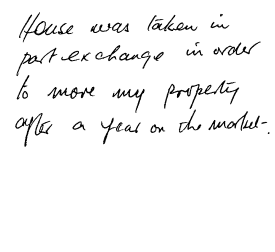 House was taken in
part exchange in order
to move my property
after a year on the market.